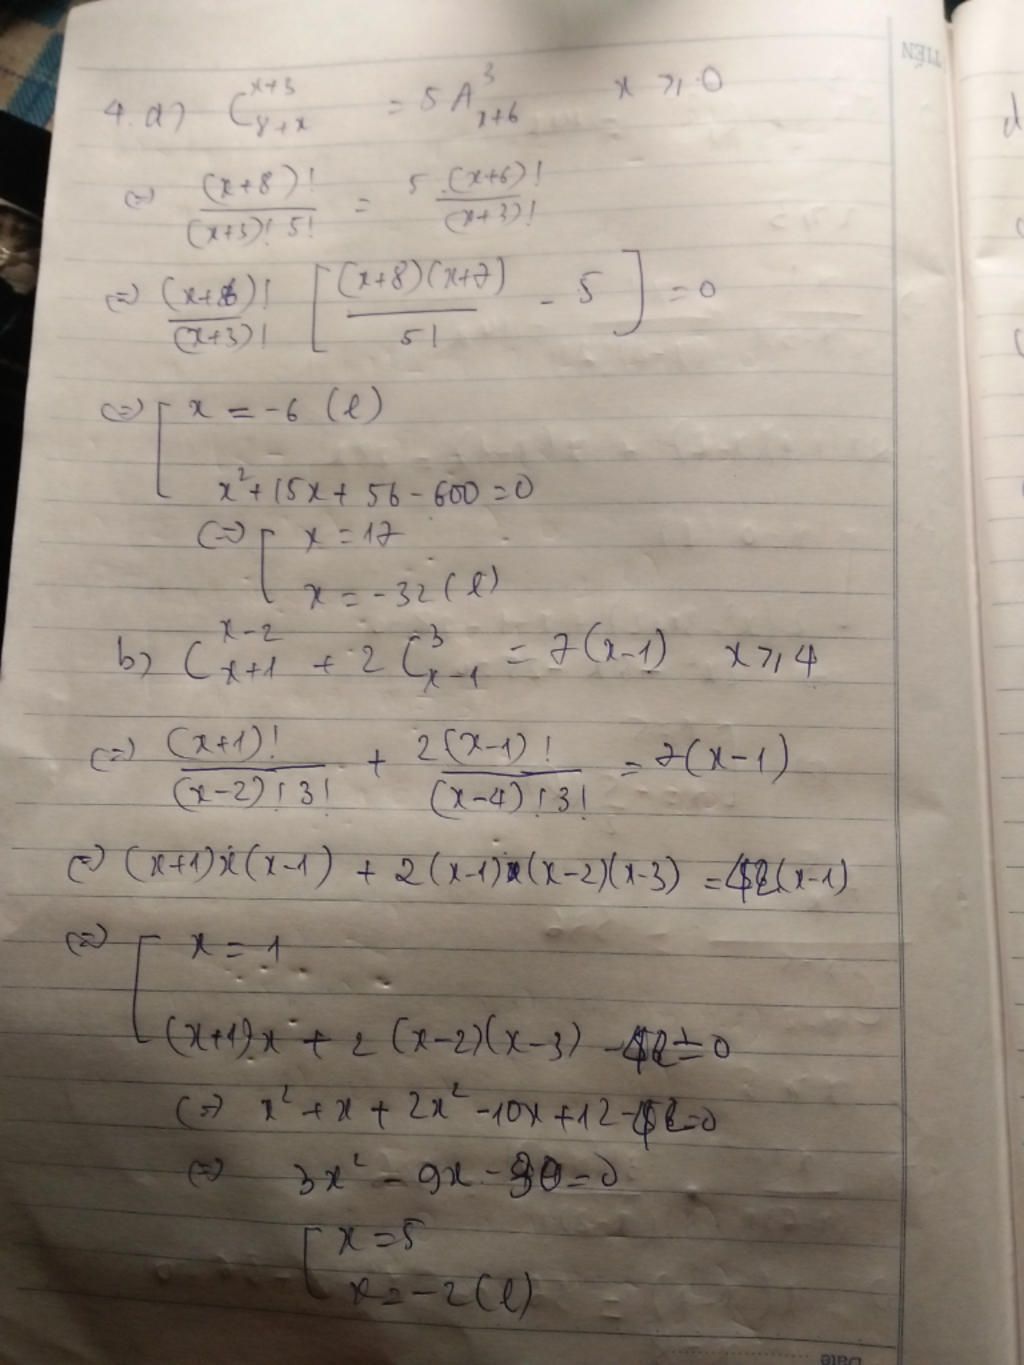 4. a) C_{8+x}^{x+3} = 5A_{x+6}^{3} x ⩾ 0
(=) \frac{(x+8)!}{(x+3)! 5!} = 5 \cdot \frac{(x+6)!}{(x+3)!}
(=) \frac{(x+6)!}{(x+3)!} [ \frac{(x+8)(x+7)}{5!} - 5 ] = 0
(=) [ x = -6 (l)
x² + 15x + 56 - 600 = 0
(=) [ x = 17
x = -32 (l)
b) C_{x+1}^{x-2} + 2 C_{x-1}^{3} = 7(x-1) x ⩾ 4
(=) \frac{(x+1)!}{(x-2)! 3!} + \frac{2(x-1)!}{(x-4)! 3!} = 7(x-1)
(=) (x+1)x(x-1) + 2(x-1)(x-2)(x-3) = 42(x-1)
(=) [ x = 1
(x+1)x + 2(x-2)(x-3) - 42 = 0
(=) x² + x + 2x² - 10x + 12 - 42 = 0
(=) 3x² - 9x - 30 = 0
[ x = 5
x = -2 (l)
TIẾN
Date